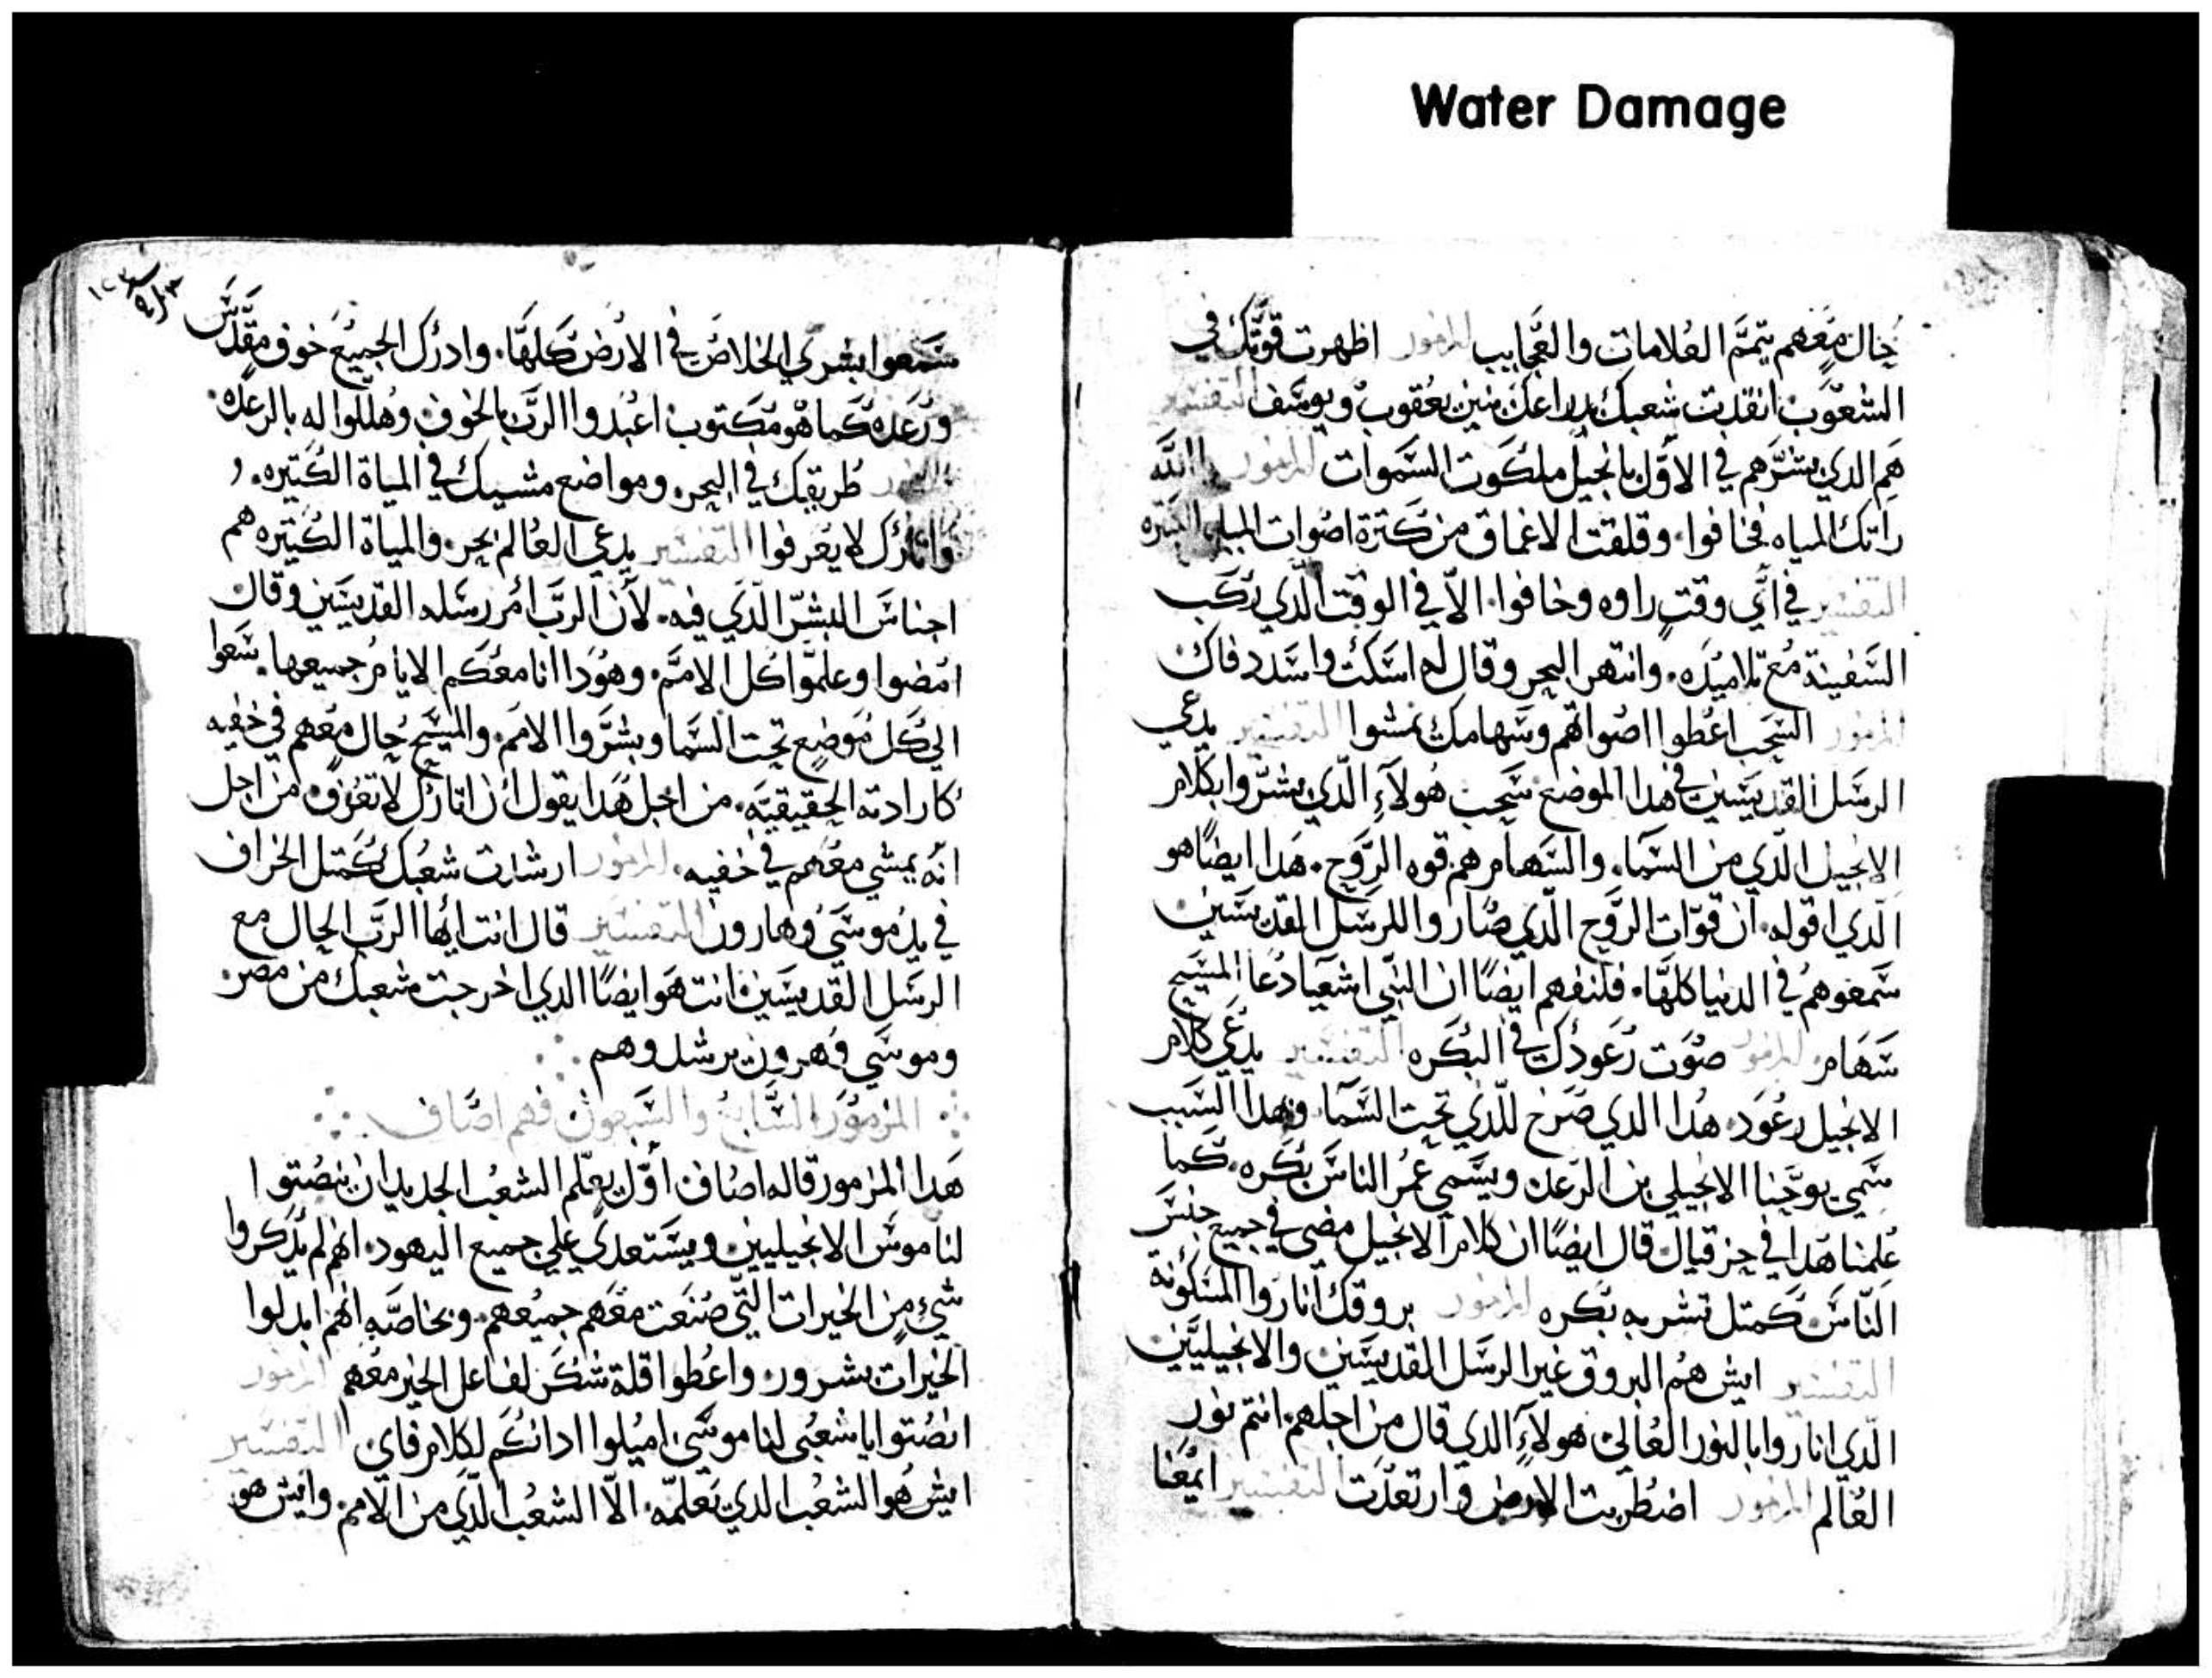 Water Damage
حال معهم يتمم العلامات والعجايب المزمور اظهرت قوتك في
الشعوب انقدت شعبك بدراعك بنين يعقوب ويوسف التفسير
هم الدي بشرهم في الاول بانجيل ملكوت السموات المزمور يا الله
راتك المياه فخافوا وقلقت الاغماق من كترة اصوات المياه الكتيره
التفسير في اي وقت راوه وخافوا الا في الوقت الدي ركب
السفينة مع تلاميده وانتهر البحر وقال له اسكت واسدد فاك
المزمور السحب اعطوا اصواتهم وسهامك تمشوا التفسير يدعي
الرسل القديسين في هدا الموضع سحب هولاء الدي بشروا بكلام
الانجيل الدي من السما والسهام هم قوه الروح هدا ايضا هو
الدي اقوله ان قوات الروح الدي صاروا للرسل القديسين
سمعوهم في الدنيا كلها فلنفهم ايضا ان النبي اشعيا دعا المسيح
سهام المزمور صوت رعودك في البكره التفسير يدعي كلام
الانجيل رعود هدا الدي صرخ للدي تحت السما وهدا السبب
سمي يوحنا الانجيلي بن الرعد ويسمي عمر الناس بكره كما
علمنا هدا في حزقيال قال ايضا ان كلام الانجيل مضي في جميع جنس
الناس كمتل تشربه بكره المزمور بروقك اناروا المسكونة
التفسير ايش هم البروق غير الرسل القديسين والانجيليين
الدي اناروا بالنور العالي هولاء الدي قال من اجلهم انتم نور
العالم المزمور اضطربت الارض وارتعدت التفسير ايمعنا
سمعوا بشري الخلاص في الارض كلها وادرك الجميع خوف مقدس
ورعده كما هو مكتوب اعبدوا الرب بالخوف وهللوا له بالرعده
المزمور طريقك في البحر ومواضع مشيك في المياة الكتيره و
واتارك لا يعرفوا التفسير يدعي العالم بحر والمياة الكتيره هم
اجناس البشر الدي فيه لان الرب امر رسله القديسين وقال
امضوا وعلموا كل الامم وهودا انا معكم الايام جميعها سعوا
الي كل موضع تحت السما وبشروا الامم والمسيح حال معهم في خفيه
كارادته الحقيقيه من اجل هدا يقول ان اتارك لا تعرف من اجل
انه يمشي معهم في خفيه المزمور ارشدت شعبك كمتل الخراف
في يد موسي وهارون التفسير قال انت ايها الرب الحال مع
الرسل القديسين انت هو ايضا الدي اخرجت شعبك من مصر
وموسي وهرون يرشلوهم
المزمور السابع والسبعون فهم اصاف
هدا المزمور قاله اصاف اول يعلم الشعب الجديد ان ينصتوا
لناموس الانجيليين ويستعدي علي جميع اليهود انهم لم يدكروا
شيء من الخيرات التي صنعت معهم جميعهم وبخاصه انهم ابدلوا
الخيرات بشرور واعطوا قلة شكر لفاعل الخير معهم المزمور
انصتوا يا شعبي لناموسي اميلوا ادانكم لكلام فاي التفسير
ايش هو الشعب الدي يعلمه الا الشعب الدي من الامم وايش هو